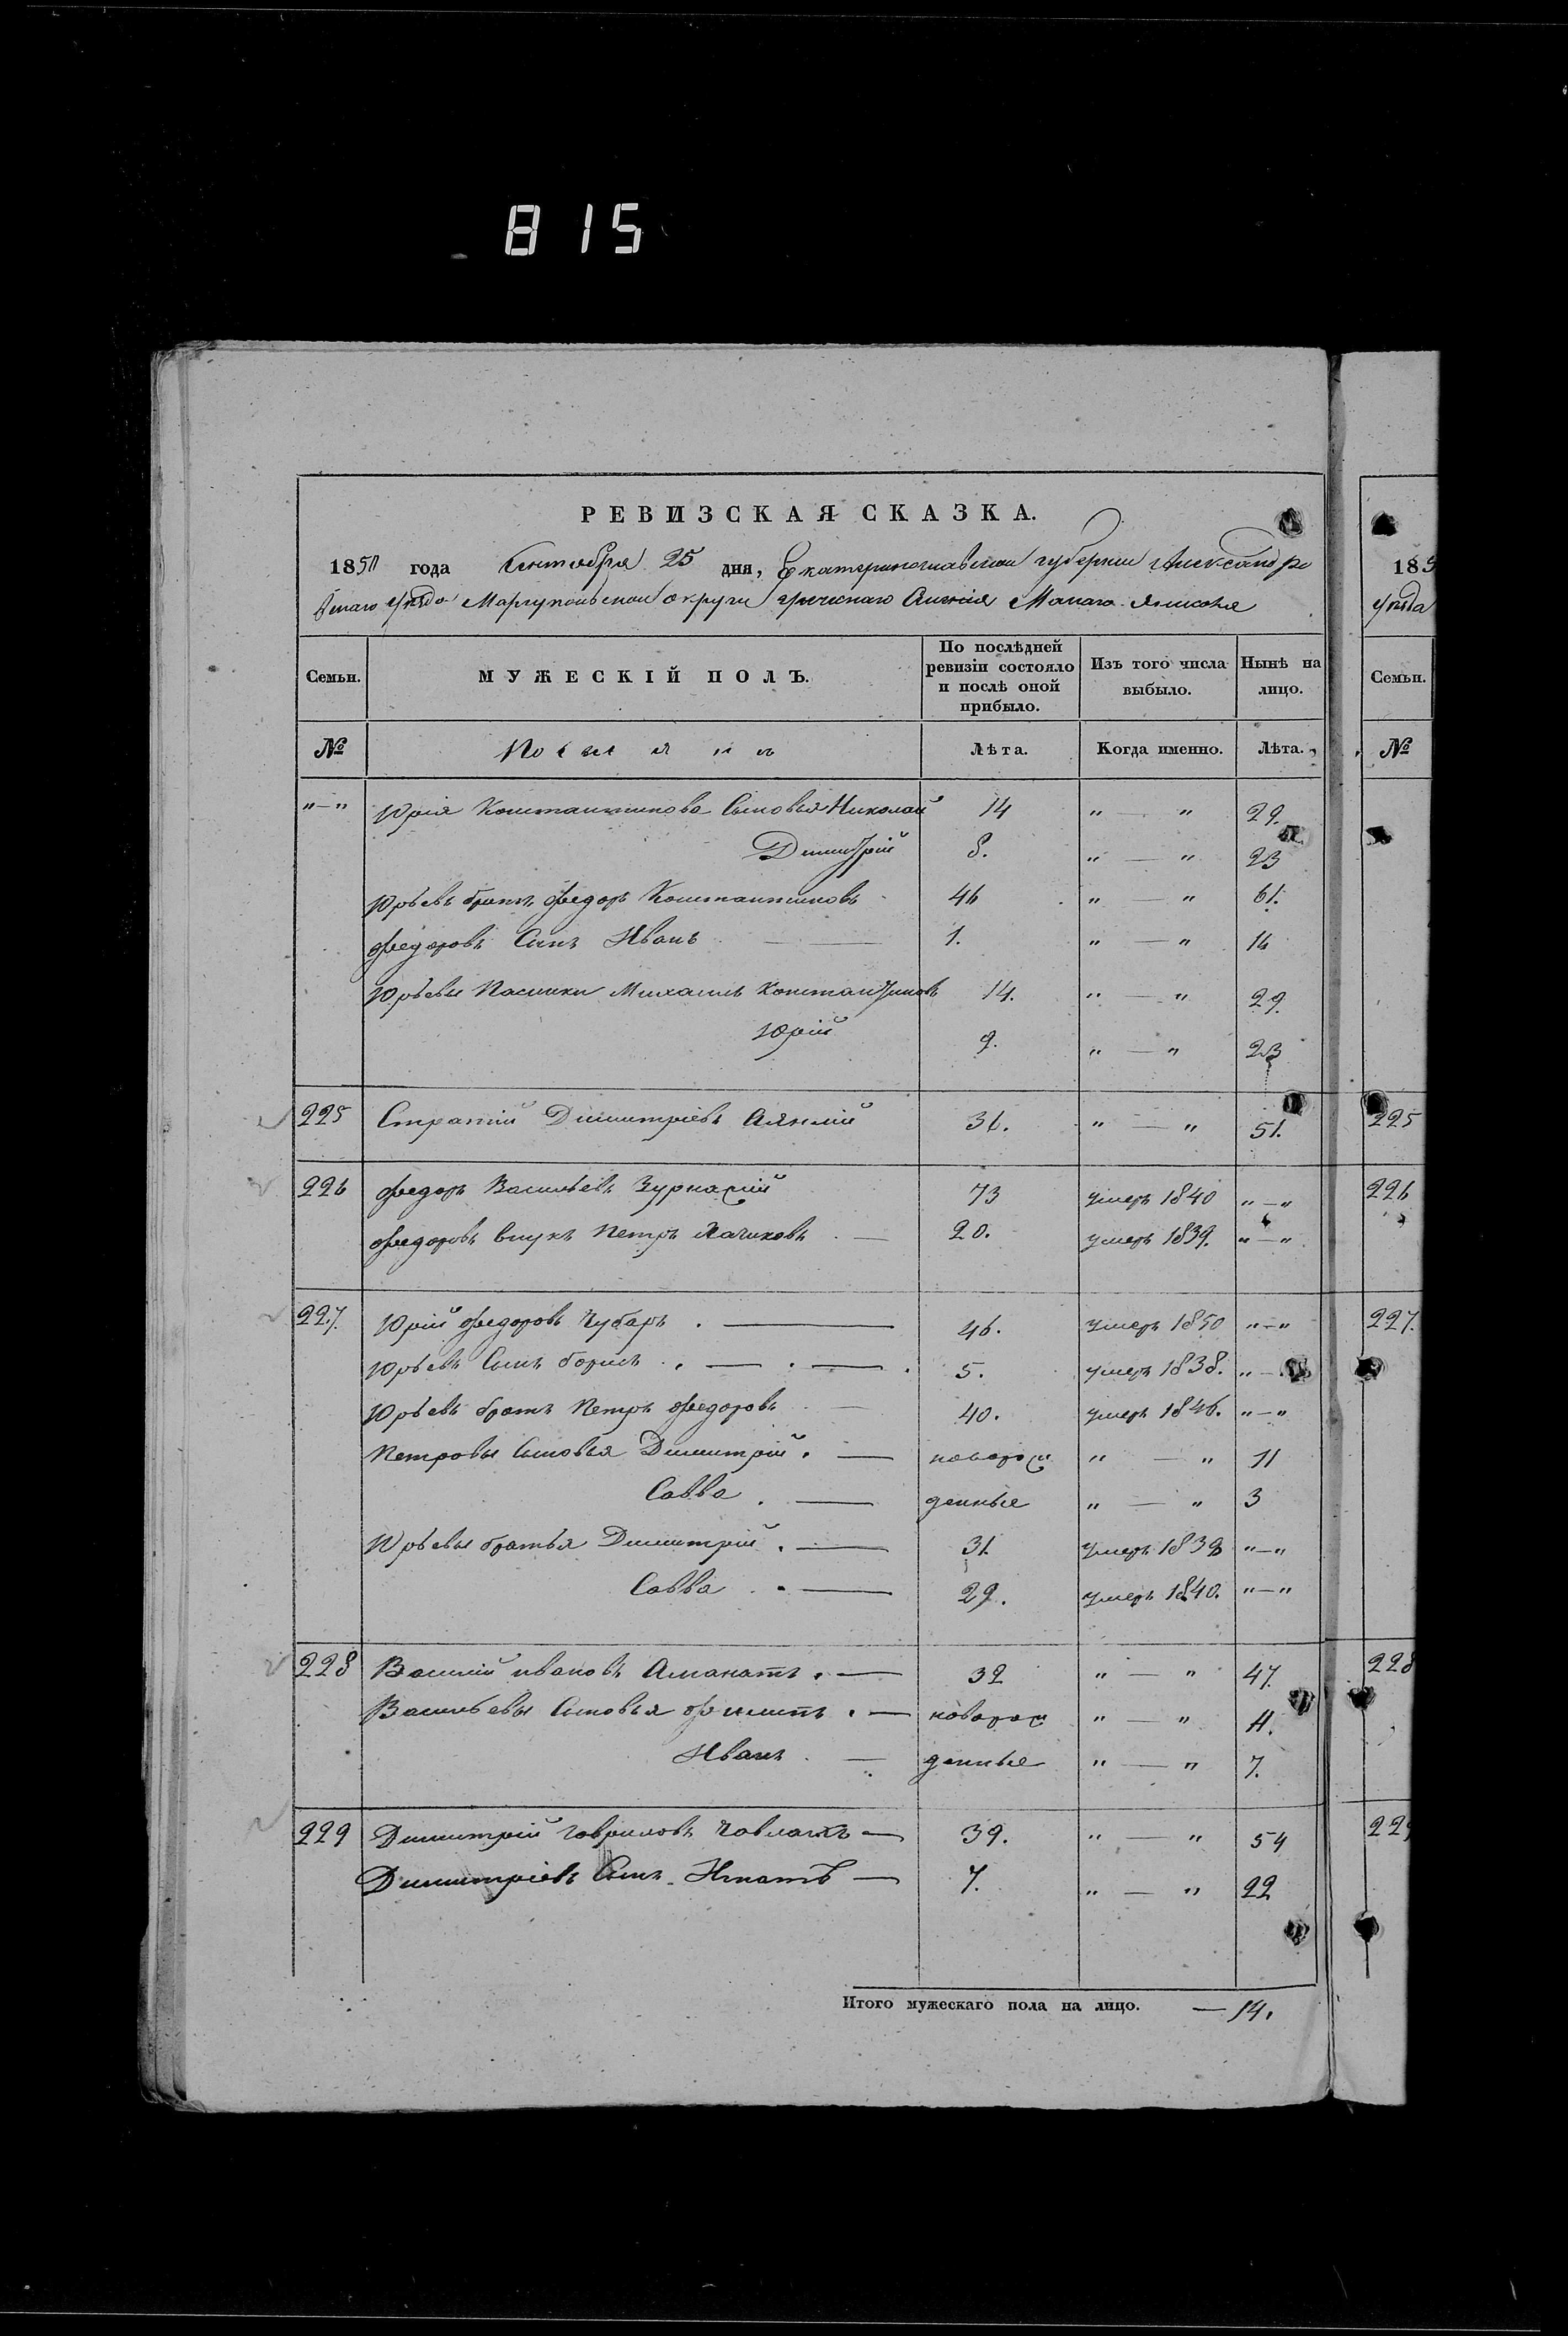 815
РЕВИЗСКАЯ СКАЗКА.
1850 года Сентября 25 дня, Екатеринославской губернии Александро
уезда Мариупольской округи греческого селения Малаго Янисоля
Семьи. МУЖЕСКІЙ ПОЛЪ. По послѣдней ревизіи состояло и послѣ оной прибыло. Изъ того числа выбыло. Нынѣ на лицо.
№ Лѣта. Когда именно. Лѣта.
"—" Юрія Константинова Сыновья Николай 14 " — " 29.
Димитрій 8. " — " 23
Юрьевъ братъ Федоръ Константиновъ 46 " — " 61.
Федоровъ Сынъ Иванъ 1. " — " 16
Юрьевы Михаилъ Константиновъ 14. " — " 29.
Юрій 9. " — " 23
225 Стратій Димитріевъ 36. " — " 51.
226 Федоръ Васильевъ 73 умеръ 1840 "—"
Федоровъ внукъ Петръ Хачиховъ 20. умеръ 1839. "—"
227. Юрій Федоровъ Чубаръ 46. умеръ 1850 "—"
Юрьевъ Сынъ Борисъ 5. умеръ 1838. "—"
Юрьевъ братъ Петръ Федоровъ 40. умеръ 1846. "—"
Петровы Сыновья Димитрій новорож " — " 11
Савва денные " — " 3
Юрьевы братья Димитрій 31 умеръ 1839 "—"
Савва 29. умеръ 1840. "—"
228 Василій Ивановъ Аманатъ 32 " — " 47.
Васильевы Сыновья новорож " — " 11.
Иванъ денные " — " 7.
229 Димитрій Гавриловъ 39. " — " 54
Димитріевъ Сынъ Игнатъ 7. " — " 22
Итого мужескаго пола на лицо. — 14.
185
уезда
Семьи.
№
225
226
227.
228
229